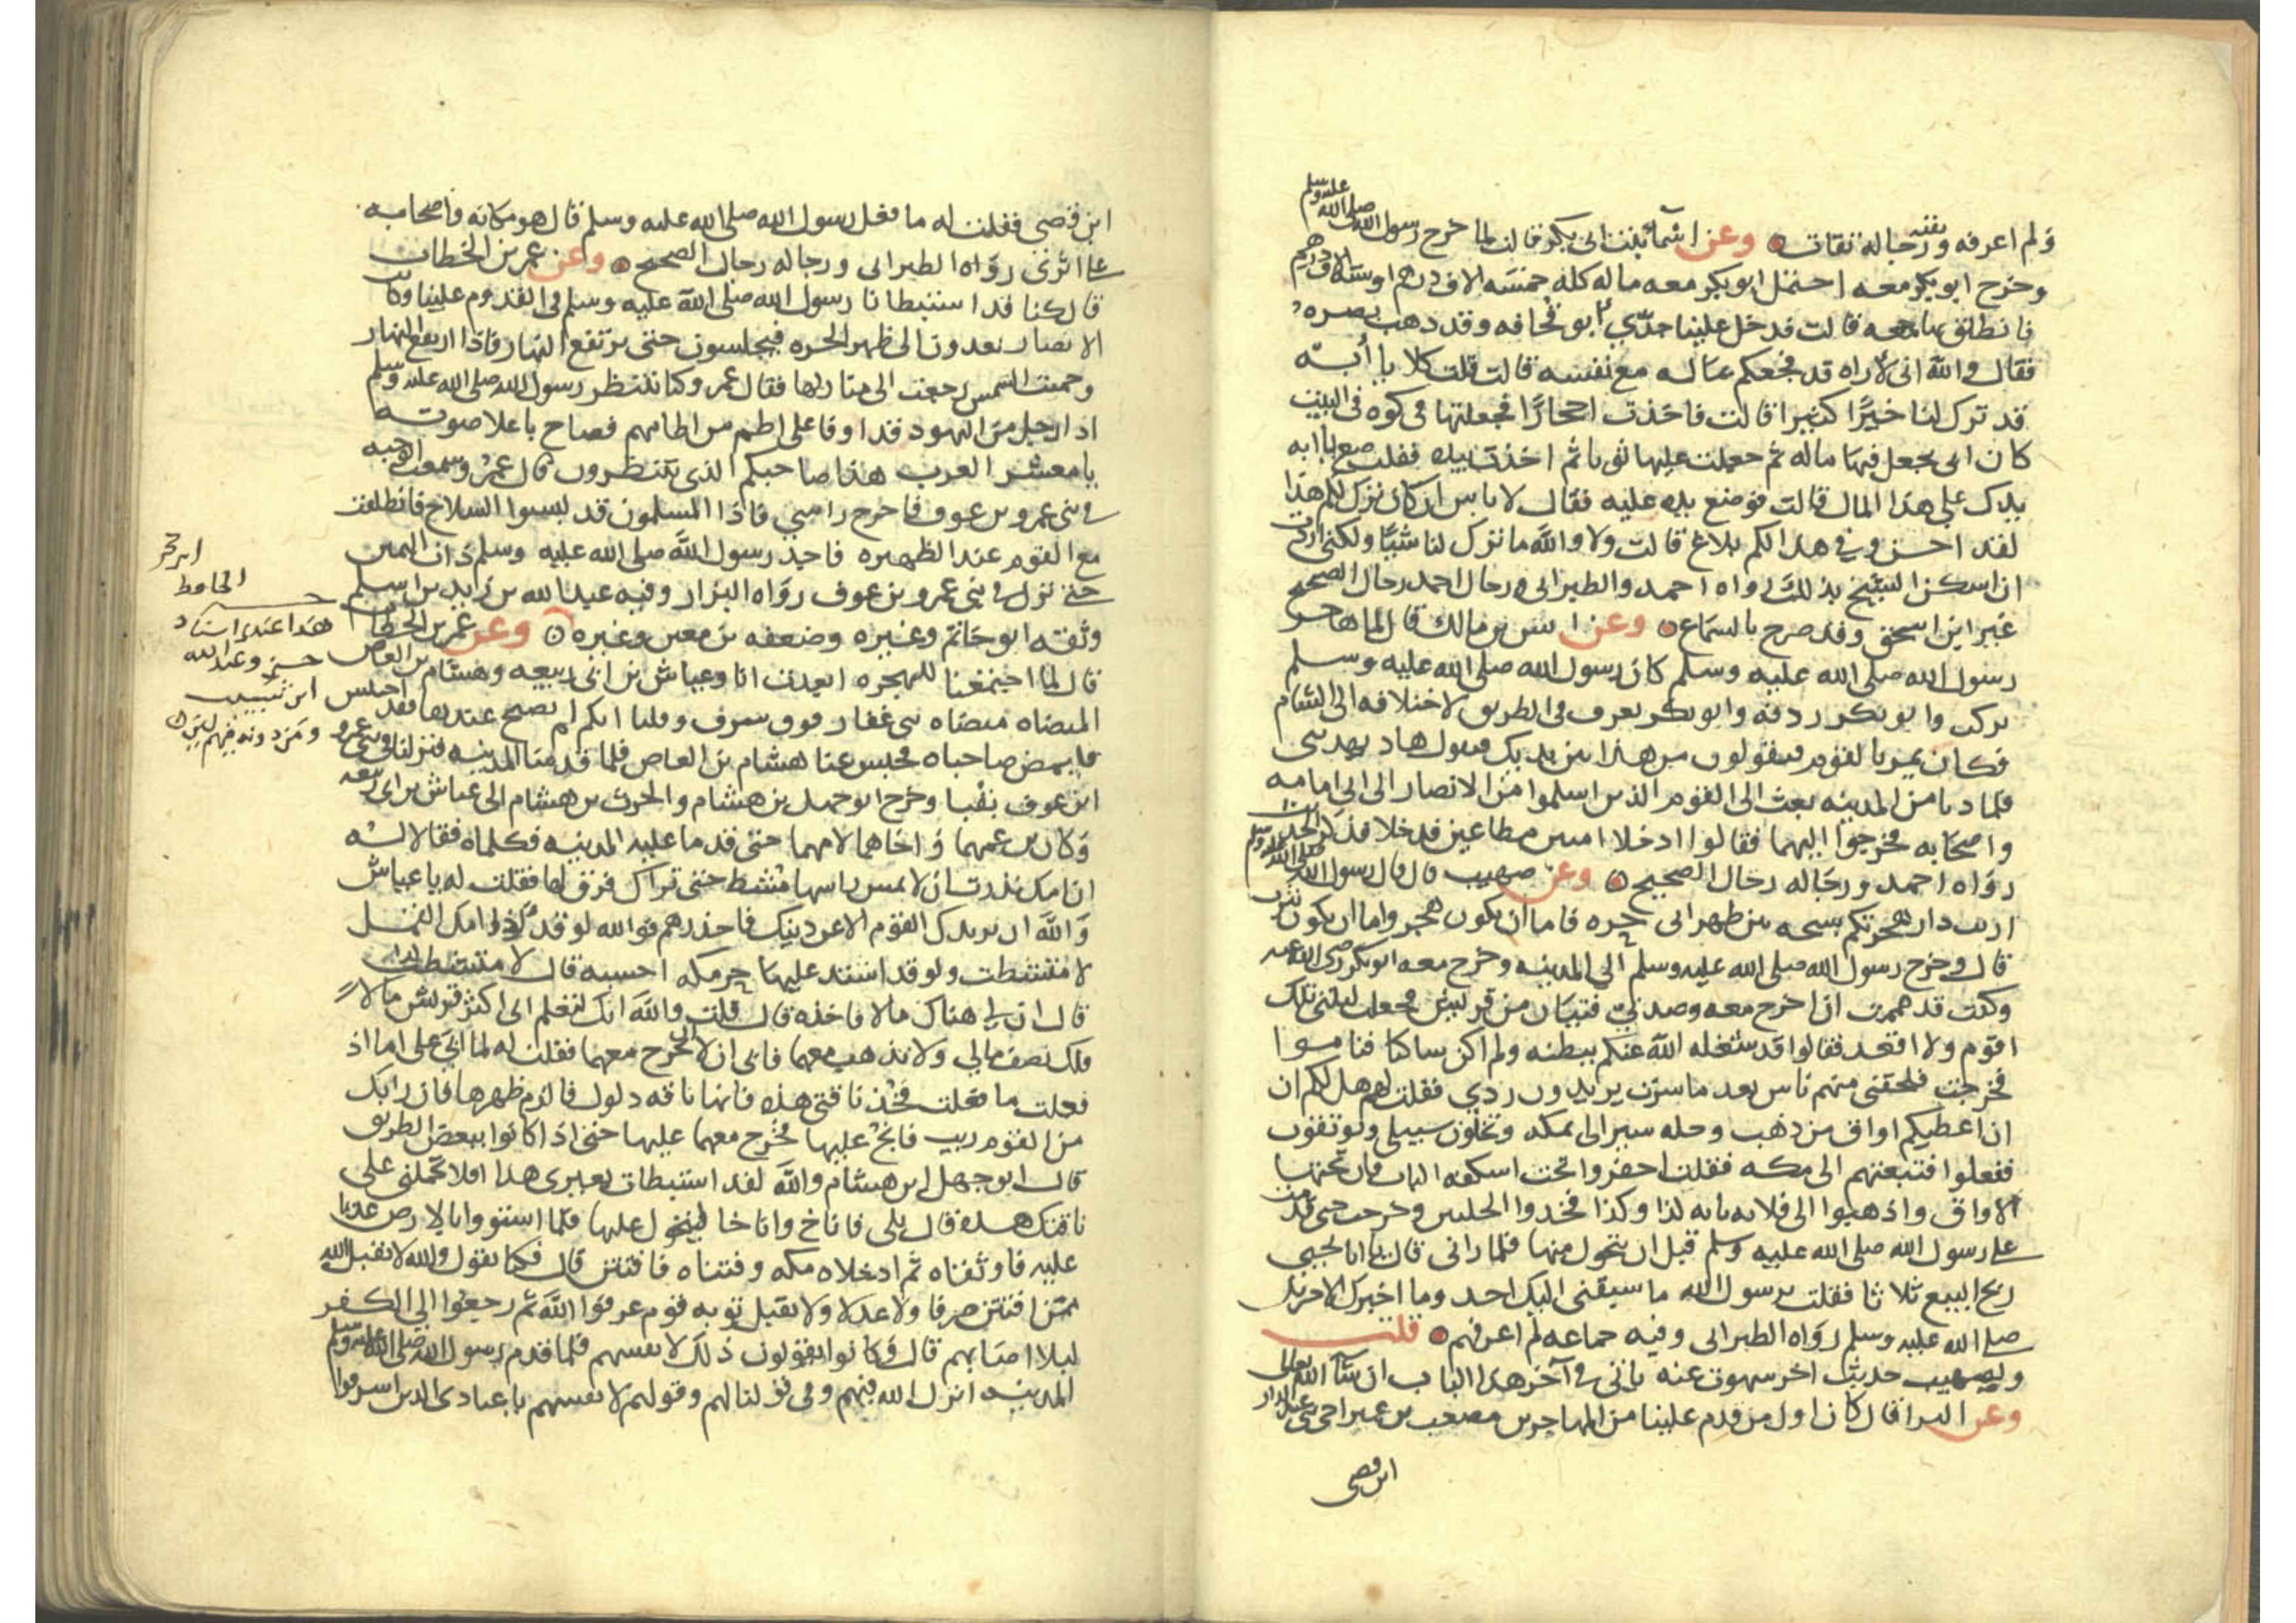 ولم اعرفه وبقية رجاله ثقات وعن اسمآ بنت ابى بكر قالت لما خرج رسول الله صلى الله عليه وسلم
وخرج ابو بكر معه احتمل ابو بكر معه ماله كله خمسة الاف درهم او ستة الاف درهم
فانطلق بها معه قالت فدخل علينا جدّي ابو قحافه وقد ذهب بصره
فقال والله انى لاراه قد فجعكم بماله مع نفسه قالت قلت كلا يا أبَه
قد ترك لنا خيرًا كثيرا قالت فاخذت احجارًا فجعلتها فى كوه فى البيت
كان ابى يجعل فيها ماله ثم جعلت عليها ثوبا ثم اخذت بيده فقلت ضع يا ابه
يدك على هذا المال قالت فوضع يده عليه فقال لا باس ان كان ترك لكم هذا
لقد احسن وفي هذا لكم بلاغ قالت ولا والله ما ترك لنا شيًا ولكنى اردت
ان اسكن الشيخ بذلك رواه احمد والطبرانى ورجال احمد رجال الصحيح
غير ابن اسحق وقد صرح بالسماع وعن انس بن مالك قال لما هاجر
رسول الله صلى الله عليه وسلم كان رسول الله صلى الله عليه وسلم
يركب وابو بكر ردفه وابو بكر يعرف فى الطريق لاختلافه الى الشام
فكان يمر بالقوم فيقولون من هذا بين يديك فيقول هاد يهدينى
فلما دنا من المدينه بعث الى القوم الذين اسلموا من الانصار الى ابى امامه
واصحابه فخرجوا اليهما فقالوا ادخلا امنين مطاعين فدخلا فذكر الحديث
رواه احمد ورجاله رجال الصحيح وعن صهيب قال قال رسول الله صلى الله عليه وسلم
اريت دار هجرتكم سبخه بين ظهرانى حره فاما ان يكون هجر واما ان يكون يثرب
قال وخرج رسول الله صلى الله عليه وسلم الى المدينه وخرج معه ابو بكر رضى الله عنه
وكنت قد هممت ان اخرج معه وصدني فتيان من قريش فجعلت ليلتى تلك
اقوم ولا اقعد فقالوا قد شغله الله عنكم ببطنه ولم اكن شاكيا فناموا
فخرجت فلحقنى منهم ناس بعد ما سرت يريدون ردي فقلت لهم هل لكم ان
ان اعطيكم اواق من ذهب وحله سيرا لى بمكه وتخلون سبيلي وتوثقون
ففعلوا فتبعتهم الى مكه فقلت احفروا تحت اسكفه الباب فان تحتها
الاواق واذهبوا الى فلانه بايه كذا وكذا فخذوا الحليتين وخرجت حتى قدمت
على رسول الله صلى الله عليه وسلم قبل ان يتحول منها فلما رانى قال يا ابا يحيى
ربح البيع ثلاثا فقلت يرسول الله ما سبقنى اليك احد وما اخبرك الا جبريل
صلى الله عليه وسلم رواه الطبرانى وفيه جماعه لم اعرفهم قلت
ولصهيب حديث اخر سهوت عنه ياتى في آخر هذا الباب ان شآ الله تعالى
وعن البرا قال كان اول من قدم علينا من المهاجرين مصعب بن عمير اخى بنى عبد الدار
ابن قصى
ابن قصى فقلت له ما فعل رسول الله صلى الله عليه وسلم قال هو مكانه واصحابه
على اثرى رواه الطبرانى ورجاله رجال الصحيح وعن عمر بن الخطاب
قال كنا قد استبطانا رسول الله صلى الله عليه وسلم فى القدوم علينا وكانت
الانصار يغدون الى ظهر الحره فيجلسون حتى يرتفع النهار فاذا ارتفع النهار
وحميت الشمس رجعت الى منازلها فقال عمر وكنا ننتظر رسول الله صلى الله عليه وسلم
اذا رجل من اليهود قد اوفا على اطم من اطامهم فصاح باعلا صوته
يا معشر العرب هذا صاحبكم الذى تنتظرون قال عمر وسمعت الوجبه
في بنى عمرو بن عوف فاخرج راسي فاذا المسلمون قد لبسوا السلاح فانطلقت
مع القوم عند الظهيره فاخذ رسول الله صلى الله عليه وسلم ذات اليمين
حتى نزل في بنى عمرو بن عوف رواه البزار وفيه عبد الله بن زيد بن اسلم
وثقه ابو حاتم وغيره وضعفه بن معين وغيره وعن عمر بن الخطاب
قال لما اجتمعنا للهجره اتعدت انا وعياش بن ابى ربيعه وهشام بن العاص
الميضاه ميضاه بنى غفار فوق سرف وقلنا ايكم لم يصبح عندها فقد احتبس
فليمض صاحباه فحبس عنا هشام بن العاص فلما قدمنا المدينه فنزلنا فى بنى عمرو
ابن عوف بقبا وخرج ابو جهل بن هشام والحرث بن هشام الى عياش بن ابى ربيعه
وكان بن عمهما واخاهما لامهما حتى قدما عليه المدينه فكلماه فقالا له
ان امك نذرت ان لا يمس راسها مشط حتى تراك فرق لها فقلت له يا عياش
والله ان يريدك القوم الا عن دينك فاحذرهم فوالله لو قد اذى امك القمل
لامتشطت ولو قد اشتد عليها حر مكه احسبه قال لامتشطت
قال ان لي هناك مالا فاخذه قال قلت والله انك لتعلم انى اكثر قريش مالًا
فلك نصف مالي ولا تذهب معهما فابى ان لا يخرج معهما فقلت له لما ابي على اما اذ
فعلت ما فعلت فخذ ناقتى هذه فانها ناقه دلول فالزم ظهرها فان رابك
من القوم ريب فانج عليها فخرج معهما عليها حتى اذا كانوا ببعض الطريق
قال ابو جهل ابن هشام والله لقد استبطات بعيرى هذا افلا تحملنى على
ناقتك هذه قال بلى فاناخ واناخا ليتحول عليها فلما استووا بالارض عديا
عليه فاوثقاه ثم ادخلاه مكه وفتناه فافتتن قال فكنا نقول والله لا يقبل الله
ممن افتتن صرفا ولا عدلا ولا يقبل توبه قوم عرفوا الله ثم رجعوا الى الكفر
لبلا اصابهم قال وكانوا يقولون ذلك لانفسهم فلما قدم رسول الله صلى الله عليه وسلم
المدينه انزل الله فيهم وفى قولنا لهم وقولهم لانفسهم يا عبادى الذين اسرفوا
ابن حجر
الحافظ
هذا عندى اسناد
حسن وعبد الله
ابن شبيب